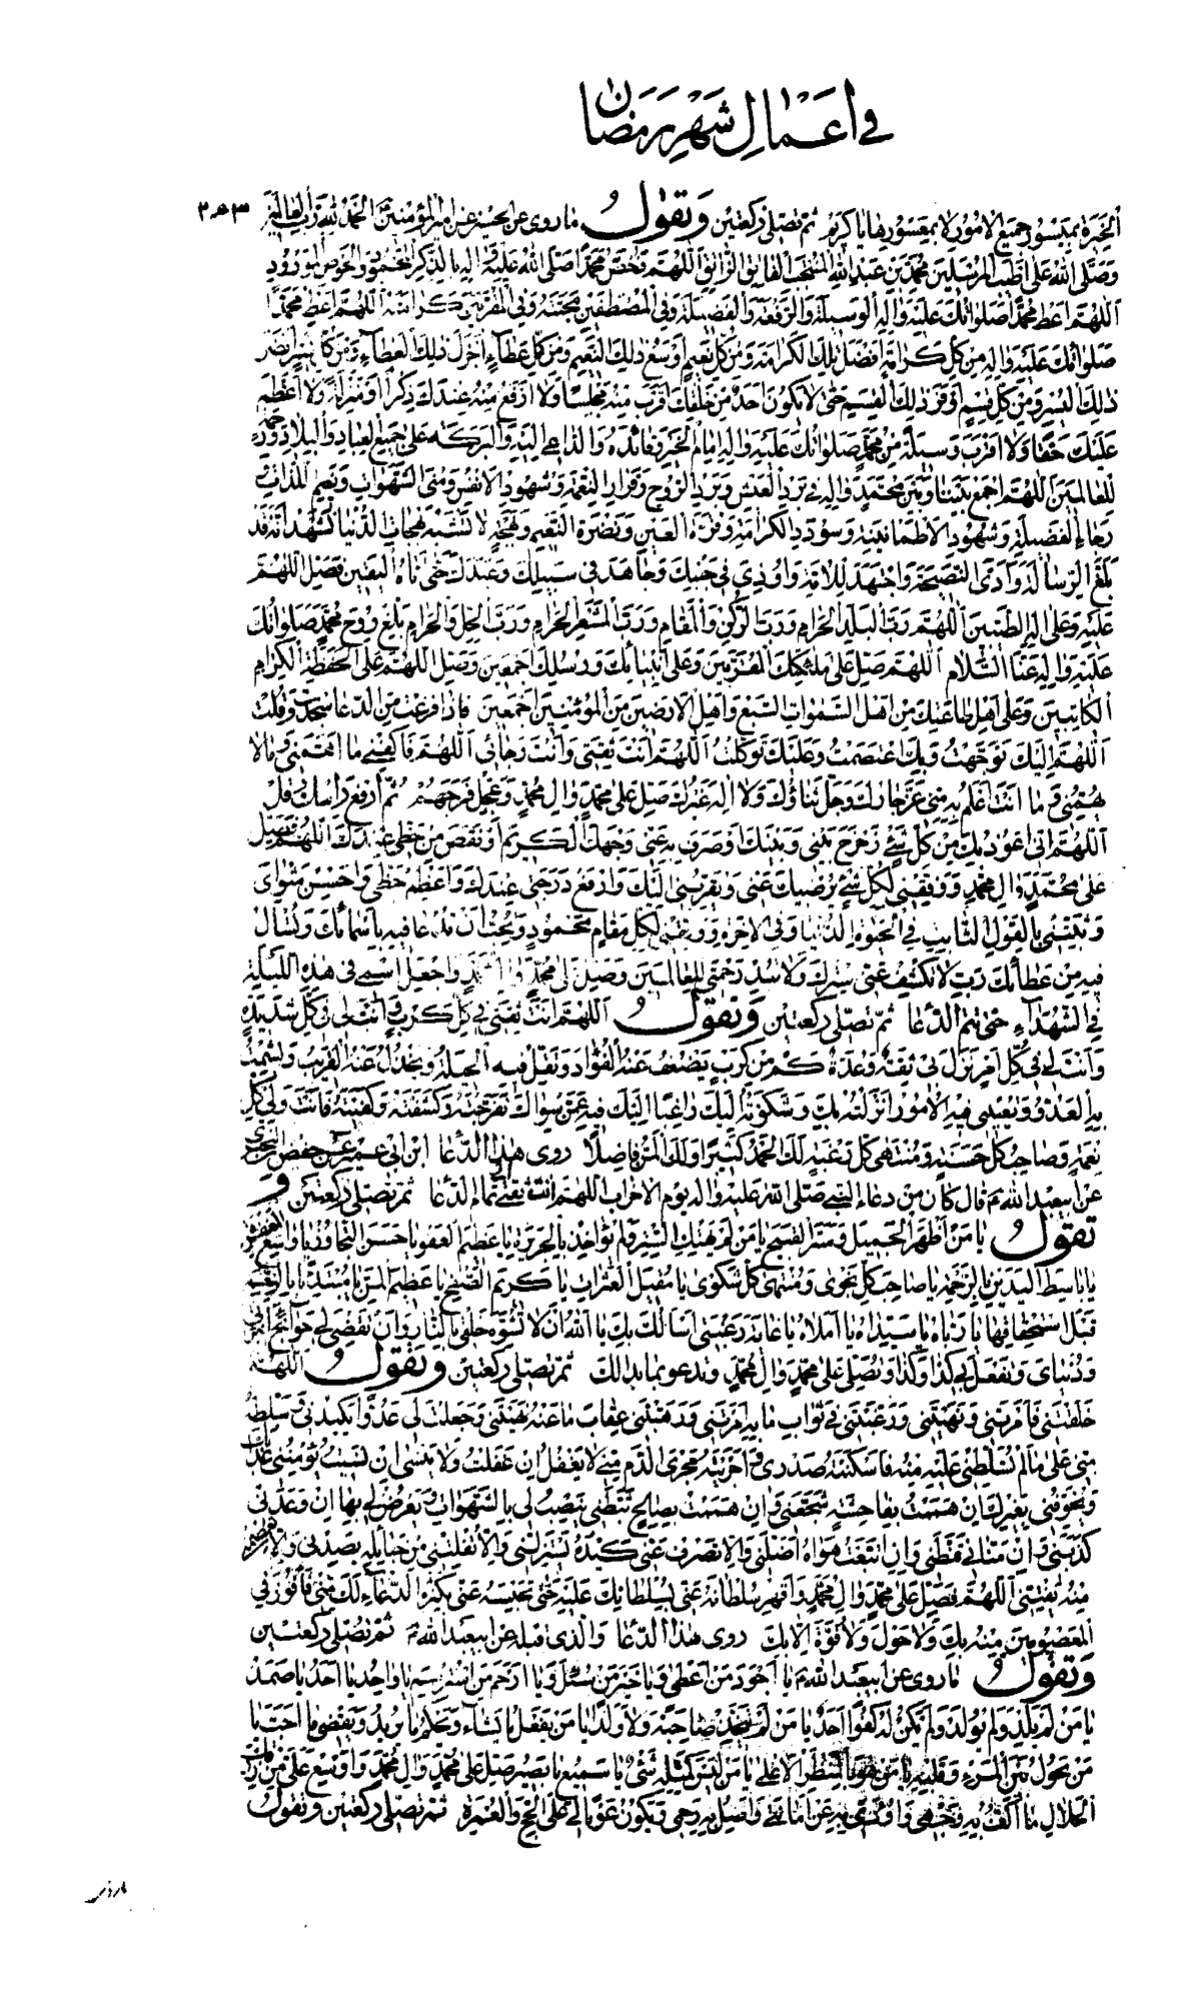 في اعمال شهر رمضان
الخيرة بميسور جميع الامور لا بمعسورها يا كريم ثم تصلي ركعتين وتقول ما روي عن الحسن عن امير المؤمنين الحمد لله رب العالمين
وصلى الله على اطيب المرسلين محمد بن عبد الله المنتجب الفاتق الراتق اللهم فخص محمدا صلى الله عليه واله بالذكر المحمود والحوض المورود
اللهم اعط محمدا صلواتك عليه واله الوسيلة والرفعة والفضيلة وفي المصطفين محبته وفي المقربين كرامته اللهم اعط محمدا
صلواتك عليه واله من كل كرامة افضل تلك الكرامة ومن كل نعيم اوسع ذلك النعيم ومن كل عطاء اجزل ذلك العطاء ومن كل يسر انضر
ذلك اليسر ومن كل قسم اوفر ذلك القسم حتى لا يكون احد من خلقك اقرب منه مجلسا ولا ارفع منه عندك ذكرا ومنزلة ولا اعظم
عليك حقا ولا اقرب وسيلة من محمد صلواتك عليه واله امام الخير وقائده والداعي اليه والبركة على جميع العباد والبلاد ورحمة
للعالمين اللهم اجمع بيننا وبين محمد واله في برد العيش وبرد الروح وقرار النعمة وشهوة الانفس ومنى الشهوات ونعيم اللذات
رجاء الفضيلة وشهود الاطمانينة وسودد الكرامة وقرة العين ونضرة النعيم وبهجة لا تشبه بهجات الدنيا نشهد انه قد
بلغ الرسالة وادى النصيحة واجتهد للامة واوذي في جنبك وجاهد في سبيلك وعبدك حتى اتاه اليقين فصل اللهم
عليه وعلى اله الطيبين اللهم رب البلد الحرام ورب الركن والمقام ورب المشعر الحرام ورب الحل والحرام بلغ روح محمد صلواتك
عليه واله عنا السلام اللهم صل على ملئكتك المقربين وعلى انبيائك ورسلك اجمعين وصل اللهم على الحفظة الكرام
الكاتبين وعلى اهل طاعتك من اهل السموات السبع واهل الارضين من المؤمنين اجمعين فاذا فرغت من الدعا سجدت وقلت
اللهم اليك توجهت وبك اعتصمت وعليك توكلت اللهم انت ثقتي وانت رجائي اللهم فاكفني ما اهمني وما لا
يهمني وما انت اعلم به مني عز جارك وجل ثناؤك ولا اله غيرك صل على محمد وال محمد وعجل فرجهم ثم ارفع راسك وقل
اللهم اني اعوذ بك من كل شئ زحزح بيني وبينك او صرف به عني وجهك الكريم او نقص من حظي عندك اللهم فصل
على محمد وال محمد ووفقني لكل شئ يرضيك عني ويقربني اليك وارفع درجتي عندك واعظم حظي واحسن مثواي
وثبتني بالقول الثابت في الحيوة الدنيا وفي الاخرة ووفقني لكل مقام محمود تحب ان تدعا فيه باسمائك وتسال
فيه من عطائك رب لا تكشف عني سترك ولا تبد رحمتي للعالمين وصل على محمد وال محمد واجعل اسمي في هذه الليلة
في الشهداء حتى يتم الدعا ثم تصلي ركعتين وتقول اللهم انت ثقتي في كل كرب وانت لي في كل شديدة
وانت لي في كل امر نزل بي ثقة وعدة كم من كرب يضعف عنه الفؤاد وتقل فيه الحيلة ويخذل عنه القريب ويشمت
به العدو وتعنيني فيه الامور انزلته بك وشكوته اليك راغبا اليك فيه عمن سواك ففرجته وكشفته وكفيته فانت ولي كل
نعمة وصاحب كل حسنة ومنتهى كل رغبة لك الحمد كثيرا ولك المن فاضلا روى هذا الدعا ابن ابي عمير عن حفص بن البختري
عن ابيعبد الله ع قال كان من دعاء النبي صلى الله عليه واله يوم الاحزاب اللهم انت ثقتي تمام الدعا ثم تصلي ركعتين و
تقول يا من اظهر الجميل وستر القبيح يا من لم يهتك الستر ولم يؤاخذ بالجريرة يا عظيم العفو يا حسن التجاوز يا واسع المغفرة
يا باسط اليدين بالرحمة يا صاحب كل نجوى ومنتهى كل شكوى يا مقيل العثرات يا كريم الصفح يا عظيم المن يا مبتدئا بالنعم
قبل استحقاقها يا رباه يا سيداه يا املاه يا غاية رغبتي اسالك بك يا الله ان لا تشوه خلقي بالنار وان تقضي لي حوائج اخرتي
ودنياي وتفعل بي كذا وكذا وتصلي على محمد وال محمد وتدعو بما بدا لك ثم تصلي ركعتين وتقول اللهم
خلقتني فامرتني ونهيتني ورغبتني في ثواب ما به امرتني ورهبتني عقاب ما عنه نهيتني وجعلت لي عدوا يكيدني وسلطته
مني على ما لم تسلطني عليه منه فاسكنته صدري واجريته مجرى الدم مني لا يغفل ان غفلت ولا ينسى ان نسيت يؤمنني عذابك
ويخوفني بغيرك ان هممت بفاحشة شجعني وان هممت بصالح ثبطني ينصب لي بالشهوات ويعرض لي بها ان وعدني
كذبني وان مناني قنطني وان اتبعت هواه اضلني والا تصرف عني كيده يستزلني والا تفلتني من حبائله يصدني والا تعصمني
منه يفتني اللهم فصل على محمد وال محمد واقهر سلطانه عني بسلطانك عليه حتى تحبسه عني بكثرة الدعاء لك مني فافوز في
المعصومين منه بك ولا حول ولا قوة الا بك روى هذا الدعا والذي قبله عن ابيعبد الله ع ثم تصلي ركعتين
وتقول ما روي عن ابيعبد الله ع يا اجود من اعطى ويا خير من سئل ويا ارحم من استرحم يا واحد يا احد يا صمد
يا من لم يلد ولم يولد ولم يكن له كفوا احد يا من لم يتخذ صاحبة ولا ولدا يا من يفعل ما يشاء ويحكم ما يريد ويقضي ما احب يا
من يحول بين المرء وقلبه يا من هو بالمنظر الاعلى يا من ليس كمثله شئ يا سميع يا بصير صل على محمد وال محمد واوسع علي من رزقك
الحلال ما اكف به وجهي واؤدي به عن امانتي واصل به رحمي ويكون عونا لي على الحج والعمرة ثم تصلي ركعتين وتقول